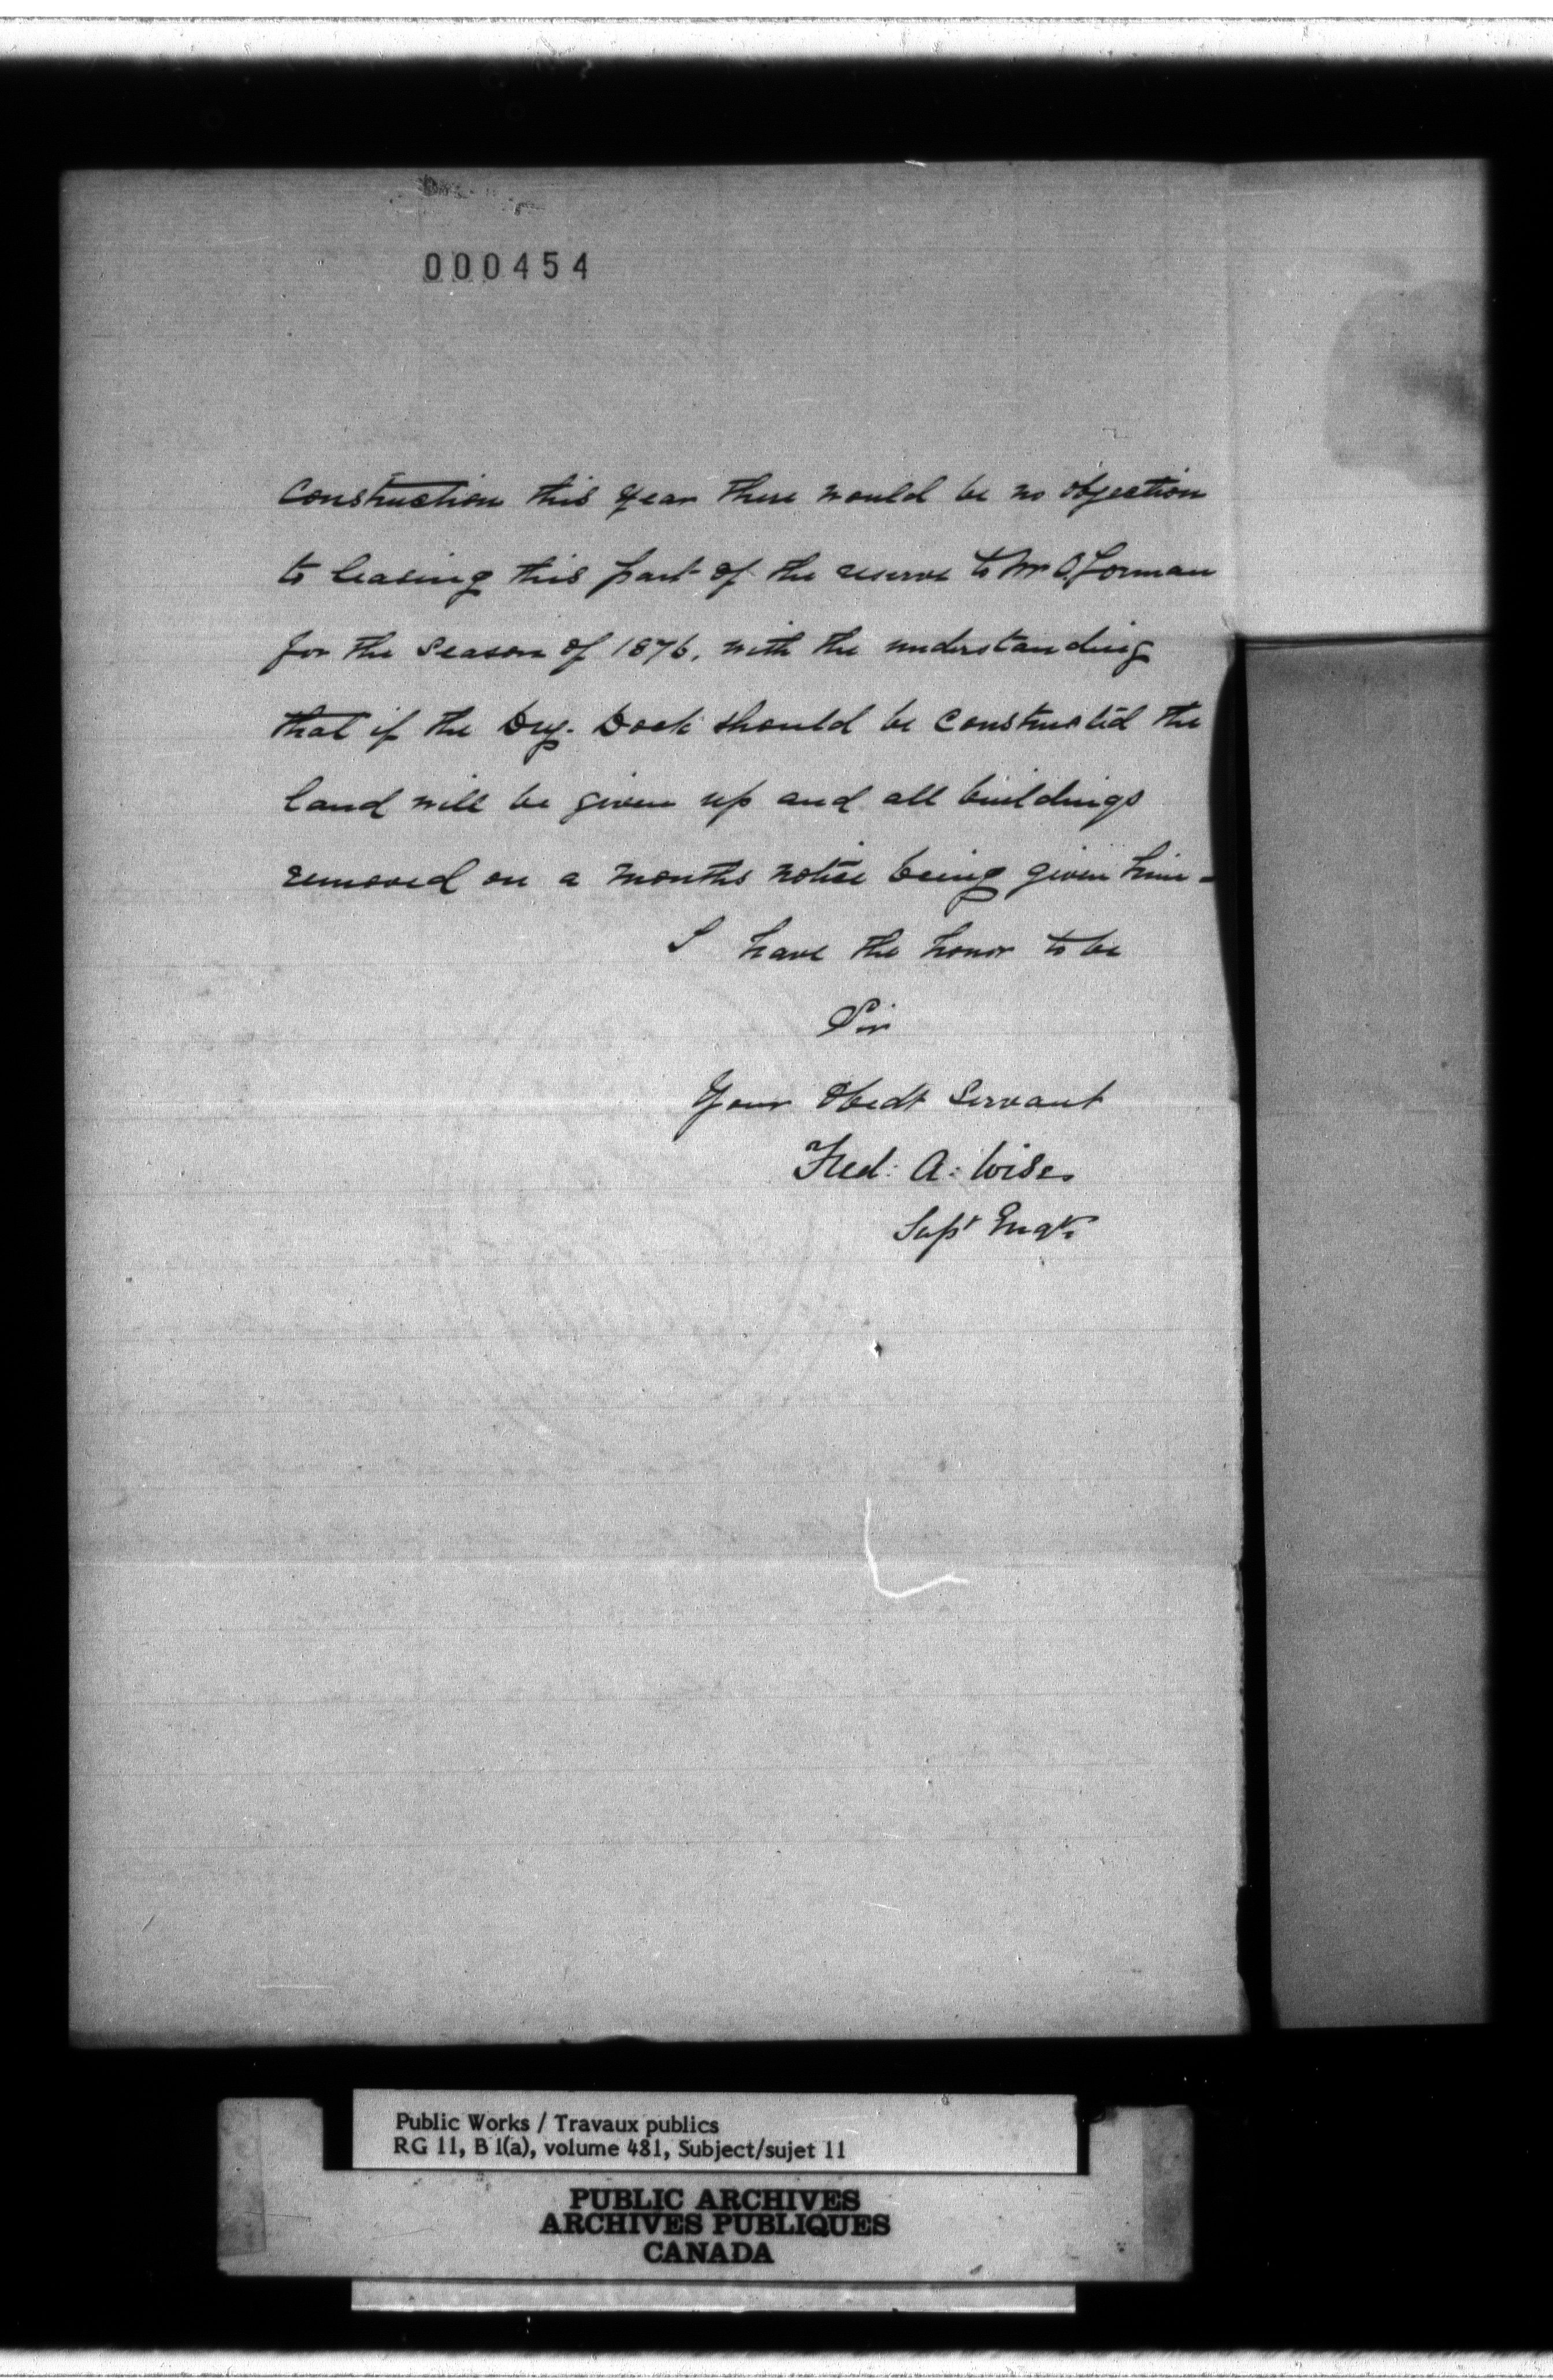 000454
Construction this year there would be no objection
to leasing this part of the reserve to Mr O.Gorman
for the Season of 1876, with the understanding
that if the Dry. Dock should be Constructed the
land will be given up and all buildings
removed on a months notice being given him -
I have the honor to be
Sir
Your Obedt Servant
Fred: A: Wise.
Supt Engr.
Public Works / Travaux publics
RG 11, B 1(a), volume 481, Subject/sujet 11
PUBLIC ARCHIVES
ARCHIVES PUBLIQUES
CANADA